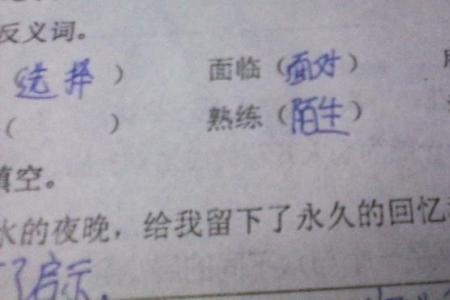 反义词。
(选择) 面临(面对)
( ) 熟练(陌生)
填空。
水的夜晚，给我留下了永久的回忆
了启示。